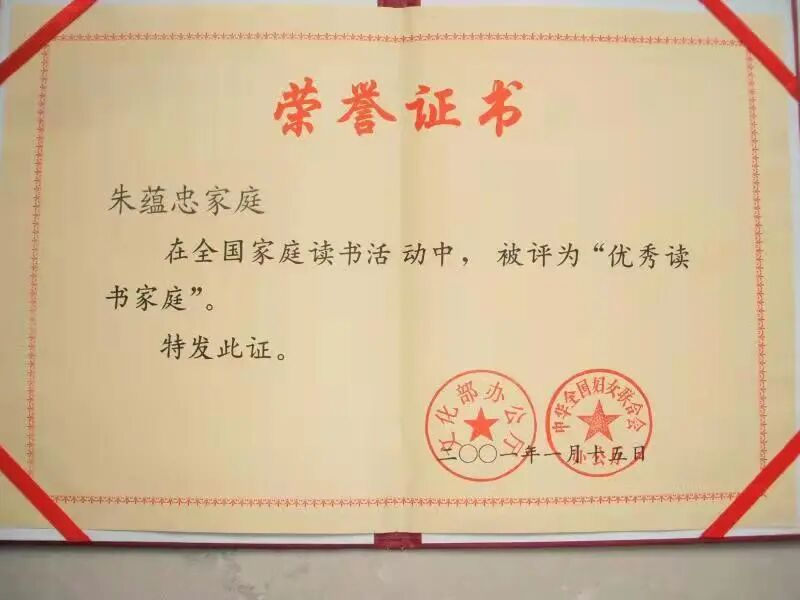 荣誉证书
朱蕴忠家庭
在全国家庭读书活动中，被评为“优秀读
书家庭”。
特发此证。
文化部办公厅
中华全国妇女联合会
办公厅
二〇〇一年一月十五日